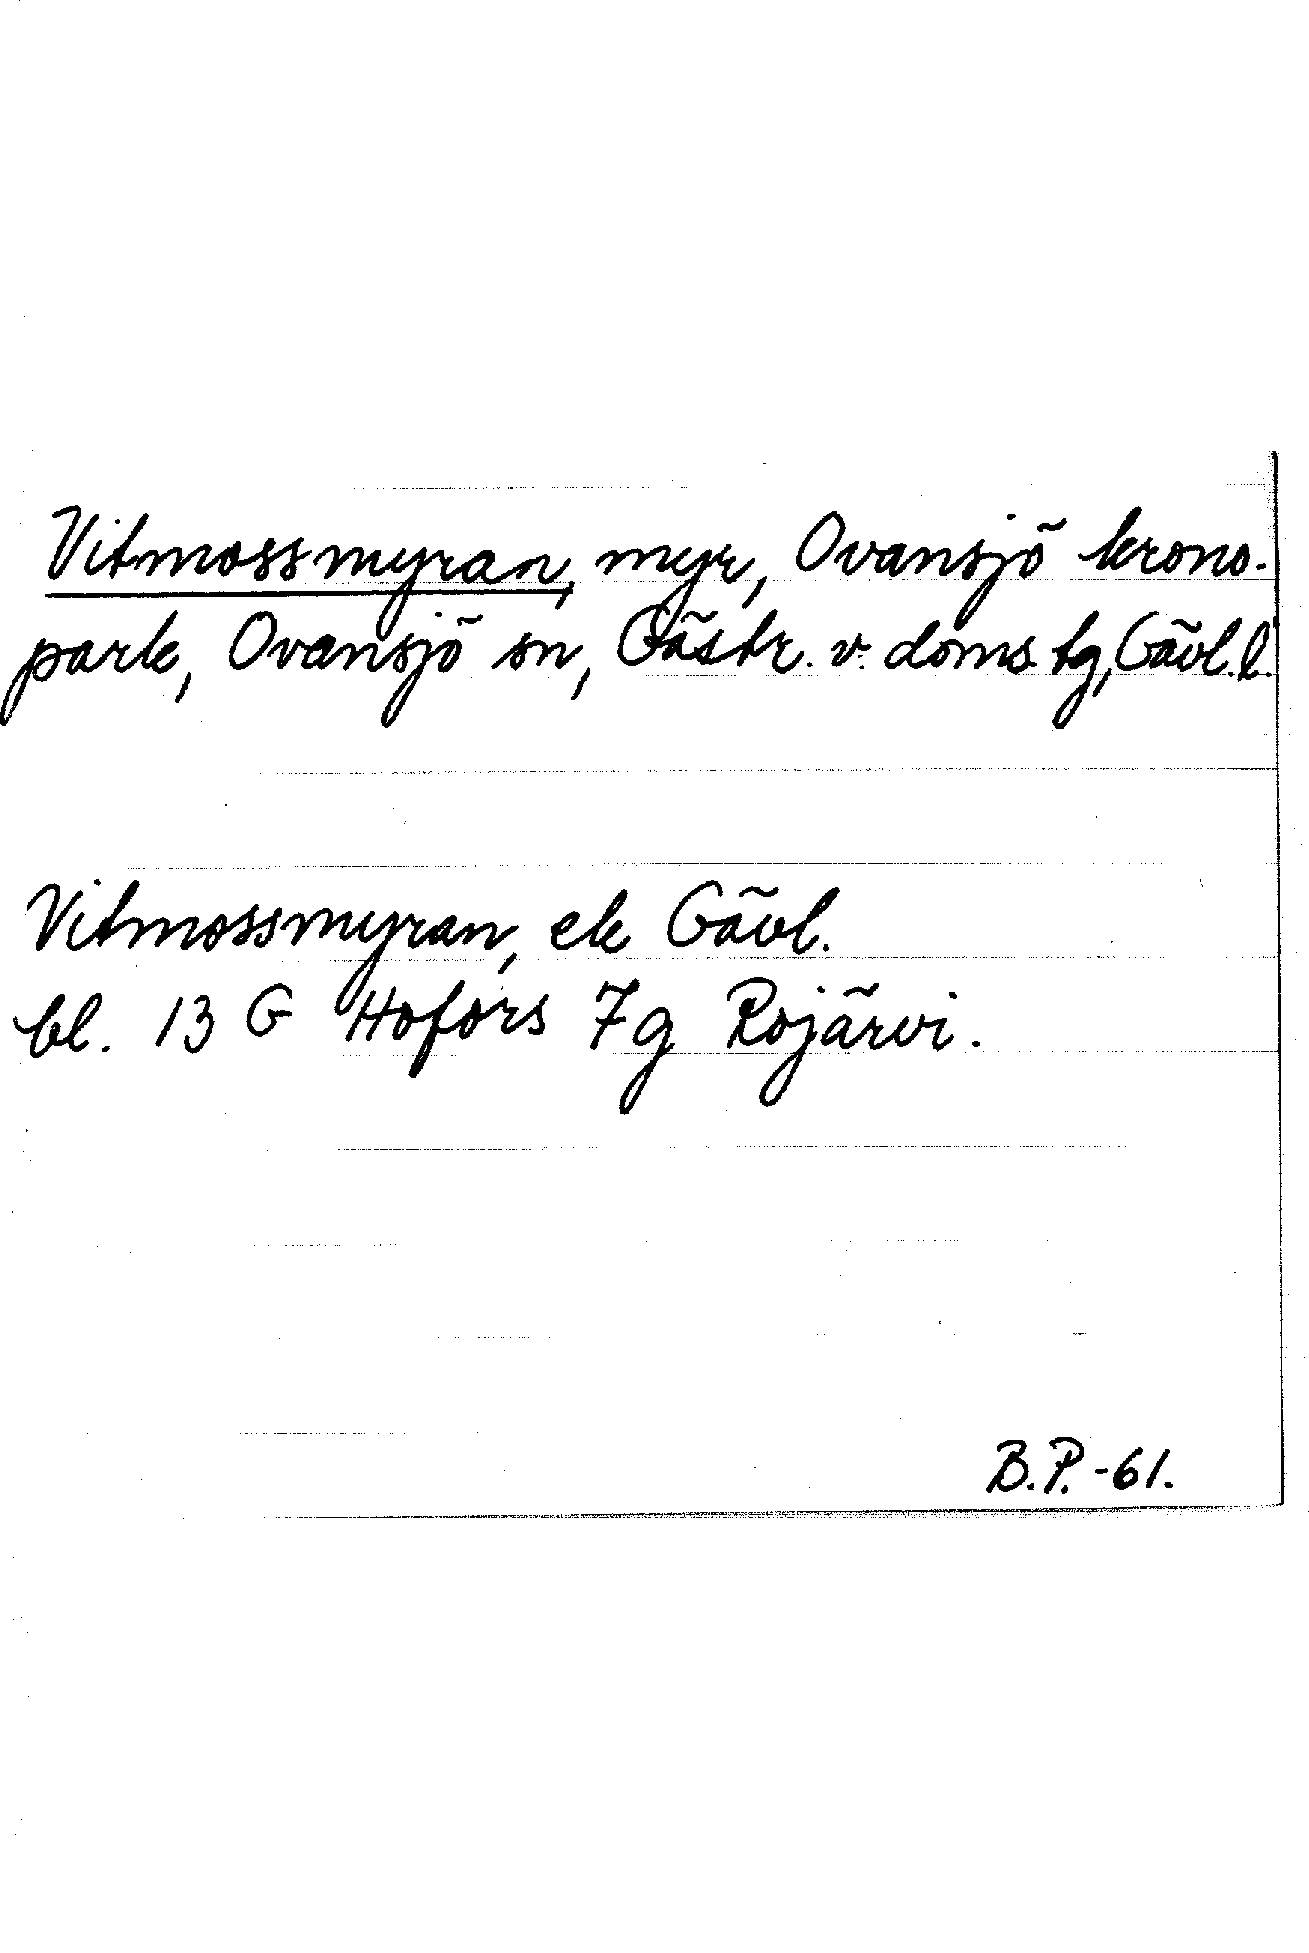 Vitmossmyran, myr, Ovansjö krono-
park, Ovansjö sn, Gästr. v. doms. tg, Gävl. l.
Vitmossmyran, ek Gävl.
bl. 13 G Hofors 7g Rojärvi.
B.P. -61.